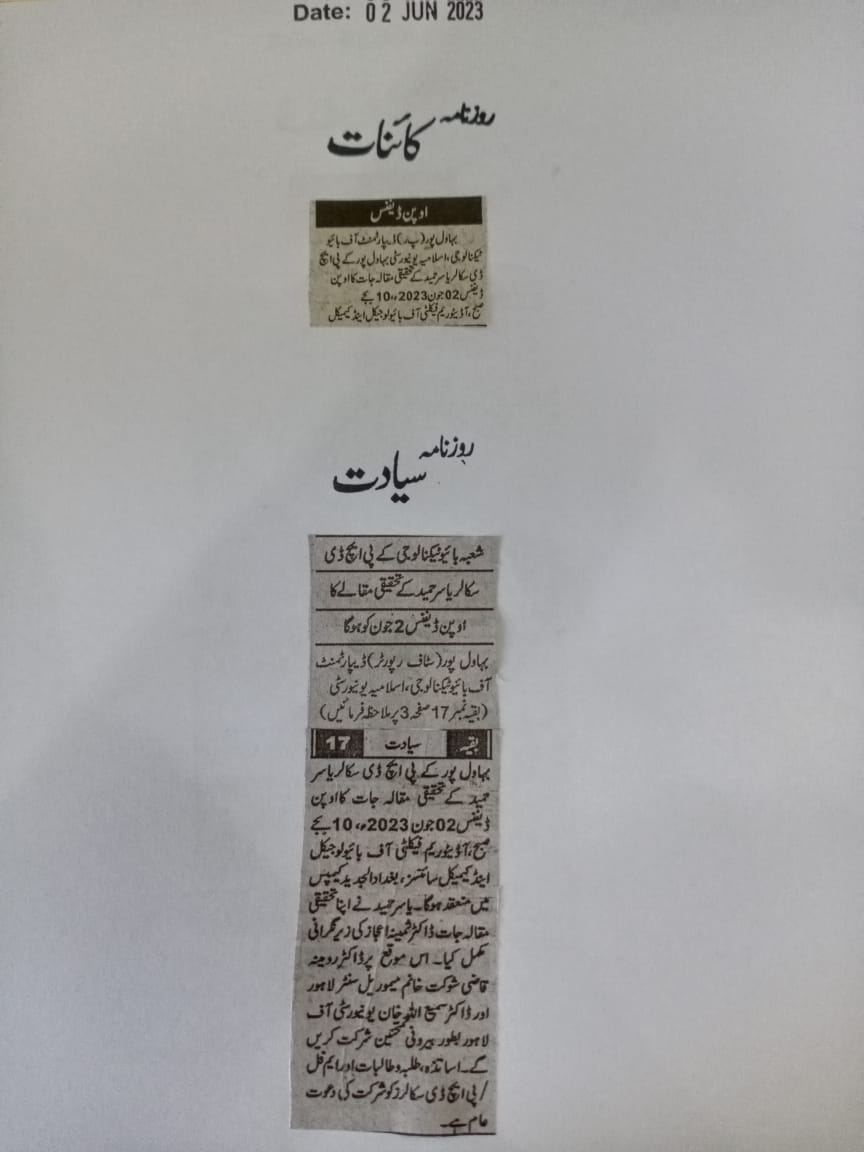 Date: 02 JUN 2023
روزنامہ
کائنات
اوپن ڈیفنس
بہاول پور(پ ر)ڈیپارٹمنٹ آف بائیو
ٹیکنالوجی،اسلامیہ یونیورسٹی بہاول پور کے پی ایچ
ڈی سکالر یاسر حمید کے تحقیقی مقالہ جات کا اوپن
ڈیفنس 02 جون 2023ء، 10 بجے
صبح، آڈیٹوریم فیکلٹی آف بائیولوجیکل اینڈ کیمیکل
روزنامہ
سیادت
شعبہ بائیوٹیکنالوجی کے پی ایچ ڈی
سکالر یاسر حمید کے تحقیقی مقالے کا
اوپن ڈیفنس 2 جون کو ہوگا
بہاول پور(سٹاف رپورٹر)ڈیپارٹمنٹ
آف بائیوٹیکنالوجی،اسلامیہ یونیورسٹی
(بقیہ نمبر 17 صفحہ 3 پر ملاحظہ فرمائیں)
بقیہ سیادت 17
بہاول پور کے پی ایچ ڈی سکالر یاسر
حمید کے تحقیقی مقالہ جات کا اوپن
ڈیفنس 02 جون 2023ء، 10 بجے
صبح، آڈیٹوریم فیکلٹی آف بائیولوجیکل
اینڈ کیمیکل سائنسز، بغداد الجدید کیمپس
میں منعقد ہوگا۔ یاسر حمید نے اپنا تحقیقی
مقالہ جات ڈاکٹر ثمینہ اعجاز کی زیر نگرانی
مکمل کیا۔ اس موقع پر ڈاکٹر روبینہ
قاضی شوکت خانم میموریل سنٹر لاہور
اور ڈاکٹر سمیع اللہ خان یونیورسٹی آف
لاہور بطور بیرونی ممتحنین شرکت کریں
گے۔ اساتذہ، طلبہ و طالبات اور ایم فل
/پی ایچ ڈی سکالرز کو شرکت کی دعوت
عام ہے۔